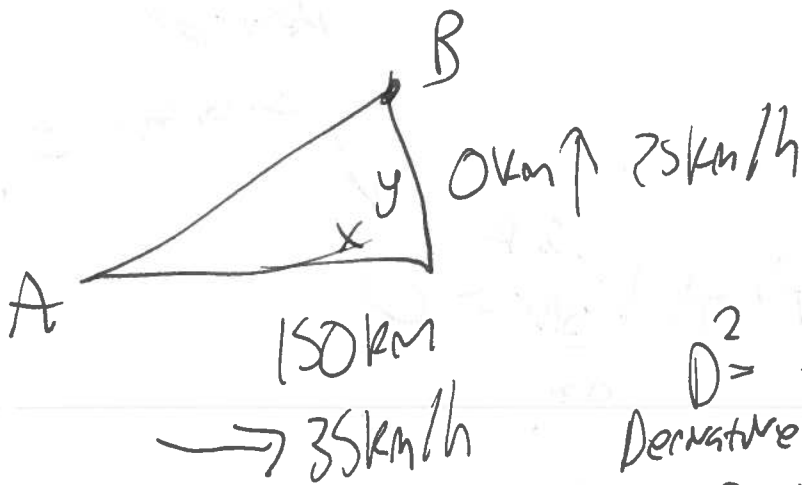 B
0km ↑ 25km/h
y
x
A
150km
→ 35km/h
D² =
Derivative